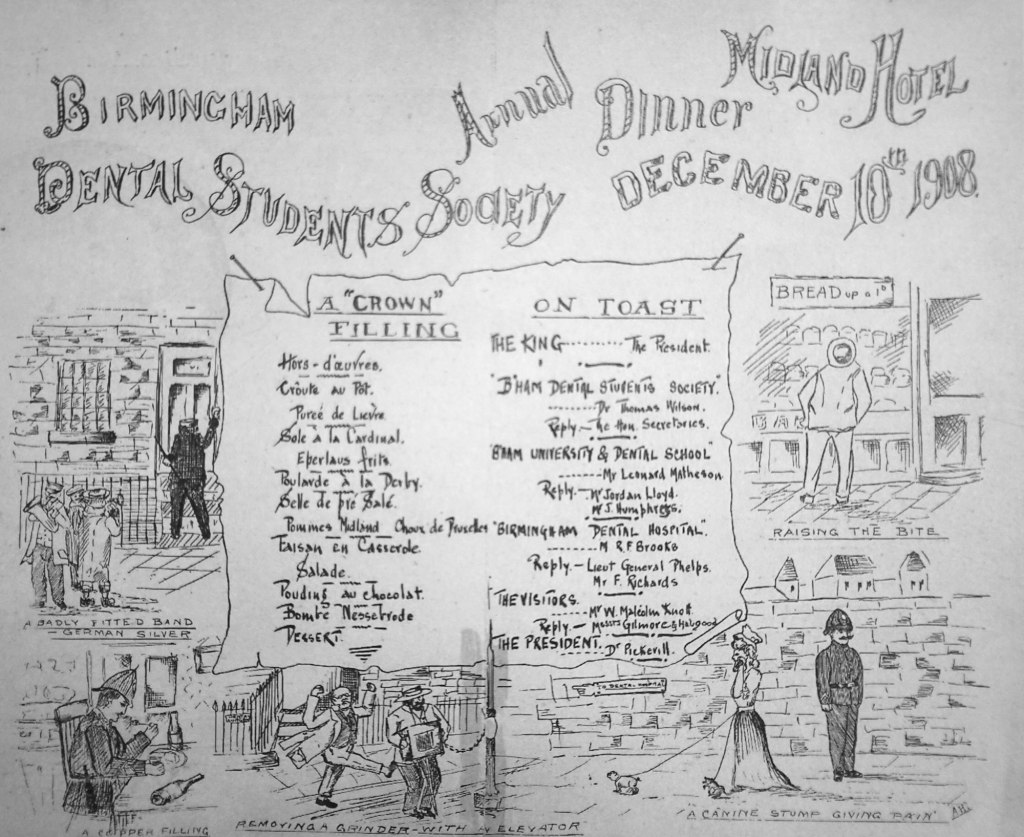 BIRMINGHAM
DENTAL STUDENTS SOCIETY
Annual Dinner
MIDLAND HOTEL
DECEMBER 10th 1908.
A "CROWN"
FILLING
Hors-d'œuvres.
Croûte au Pot.
Pureé de Lievre
Sole à la Cardinal.
Eperlaus frits.
Poularde à la Derby.
Selle de pré Salé.
Pommes Midland Choux de Bruxelles
Faisan en Casserole
Salade
Pouding au chocolat.
Bombe Nesselrode
DESSERT.
ON TOAST
THE KING The President.
"B'HAM DENTAL STUDENTS SOCIETY."
Dr Thomas Wilson.
Reply.- The Hon. Secretaries.
B'HAM UNIVERSITY & DENTAL SCHOOL"
Mr Leonard Matheson
Reply.- Mr Jordan Lloyd.
Mr J. Humphreys.
"BIRMINGHAM DENTAL HOSPITAL."
M R.F Brooks
Reply.- Lieut General Phelps.
Mr F. Richards
THE VISITORS.
Mr W. Malcolm Knott
Reply.- Messrs Gilmore & Habgood
THE PRESIDENT. Dr Pickerill.
BREAD up a 1D
RAISING THE BITE
A BADLY FITTED BAND
- GERMAN SILVER
TO DENTAL HOSPITAL
A COPPER FILLING
REMOVING A GRINDER - WITH AN ELEVATOR
"A CANINE STUMP GIVING PAIN"